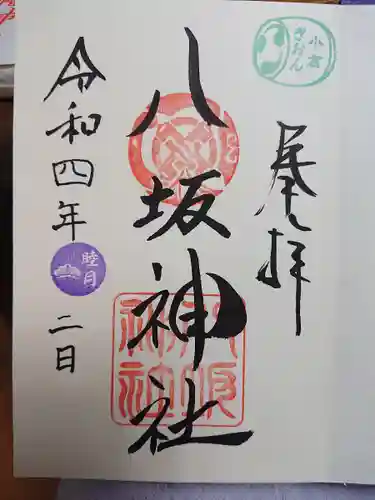 小倉
ぎおん
奉拝
八坂神社
八坂
神社
令和四年
睦月
二日